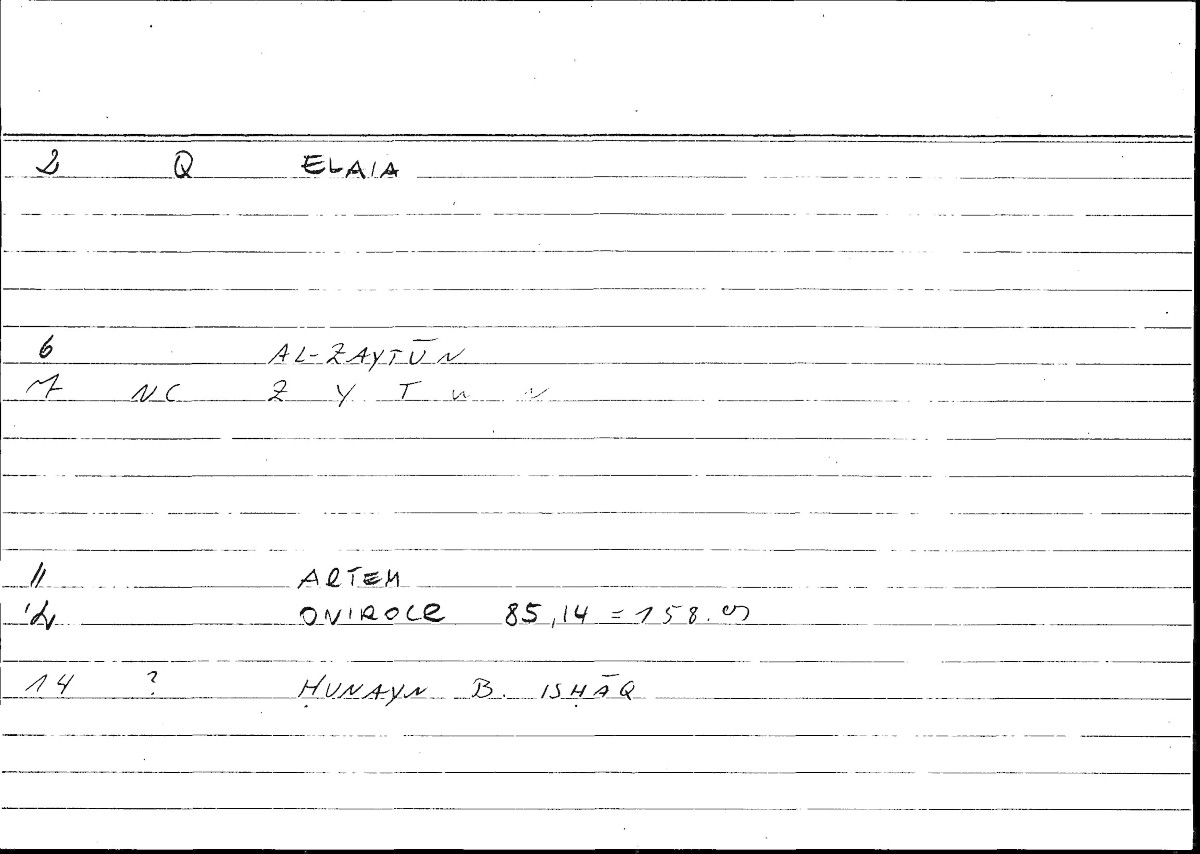 2 Q ELAIA
6 AL-ZAYTŪN
7 NC Z Y T W N
11 ARTEM
12 ONIROCR 85,14 = 158.9
14 ? ḤUNAYN B. ISḤĀQ